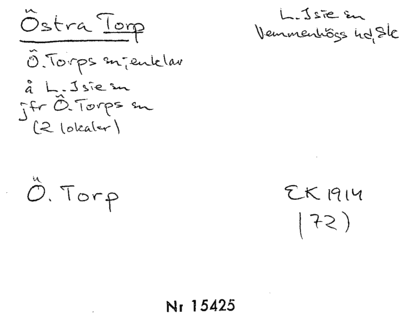 Östra Torp
L. Isie sn
Vemmenhögs hd, Sk
Ö. Torps sn; enklav
å L. Isie sn
jfr Ö. Torps sn
(2 lokaler)
Ö. Torp
EK 1914
(72)
Nr 15425